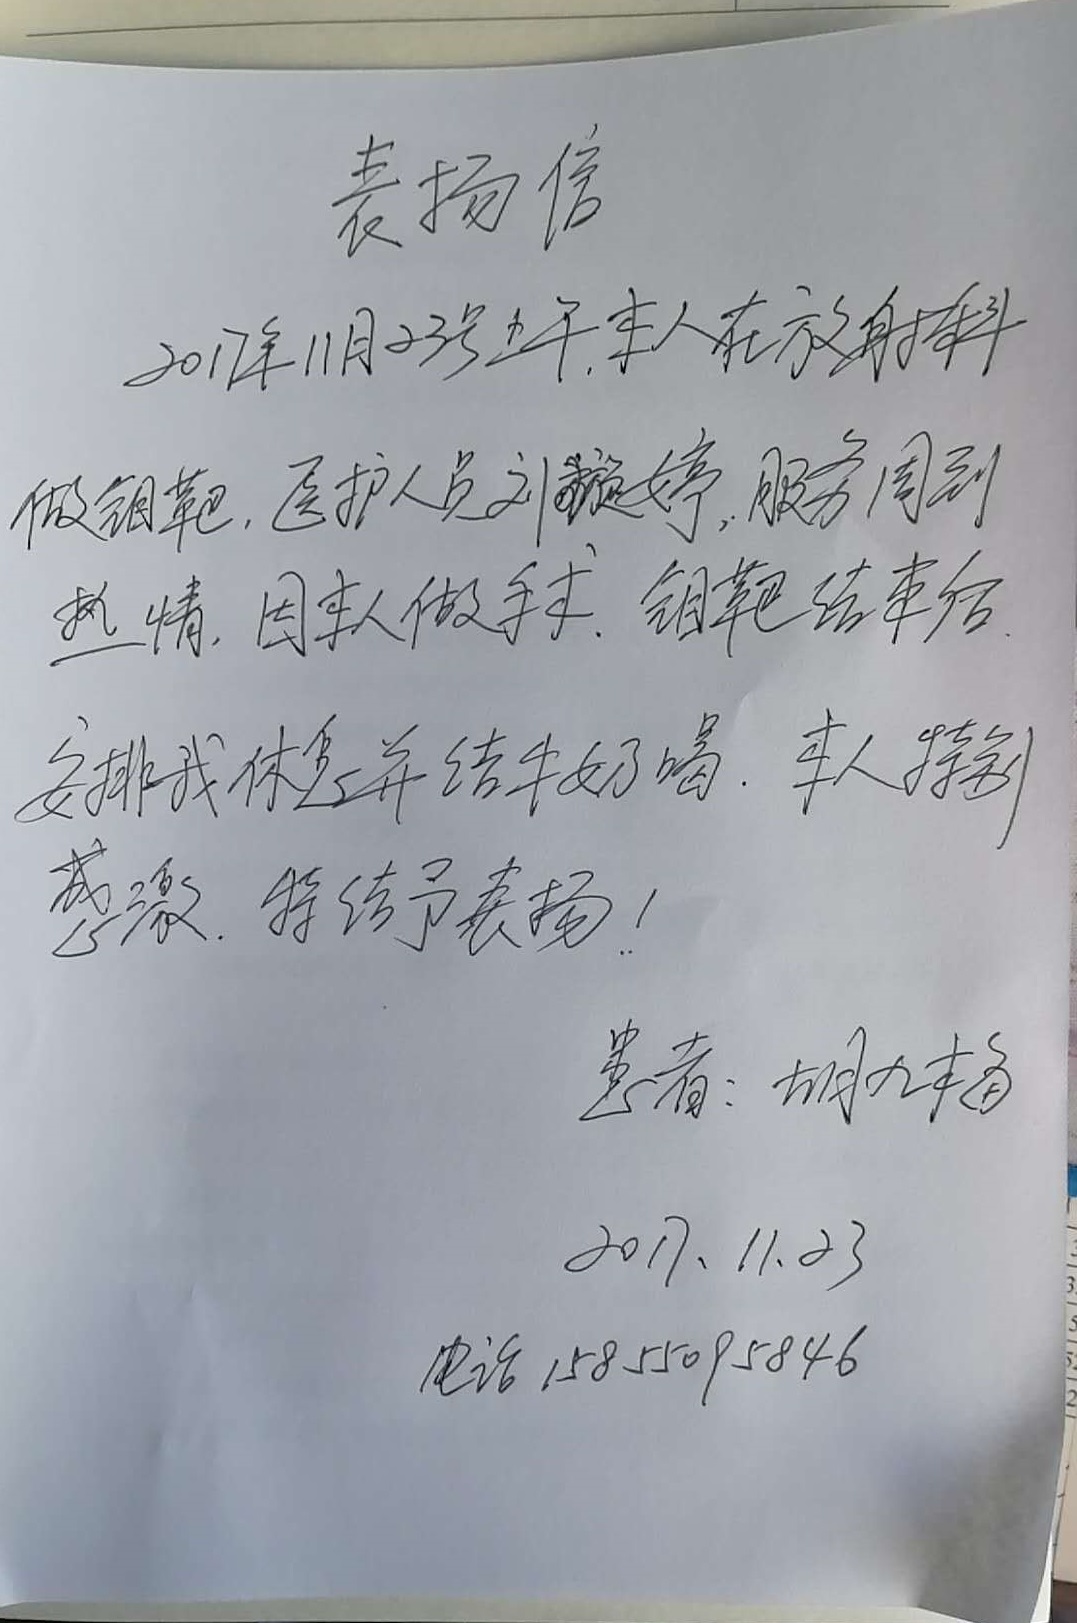 表扬信
2017年11月23号上午,本人在放射科
做钼靶,医护人员刘婷,服务周到
热情,因本人做手术、钼靶结束后
安排我休息并给牛奶喝.本人特别
感激.特给予表扬!
患者:胡九梅
2017、11、23
电话15855095846